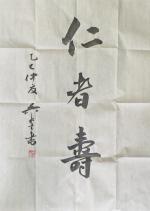 仁者壽
乙巳仲夏
書